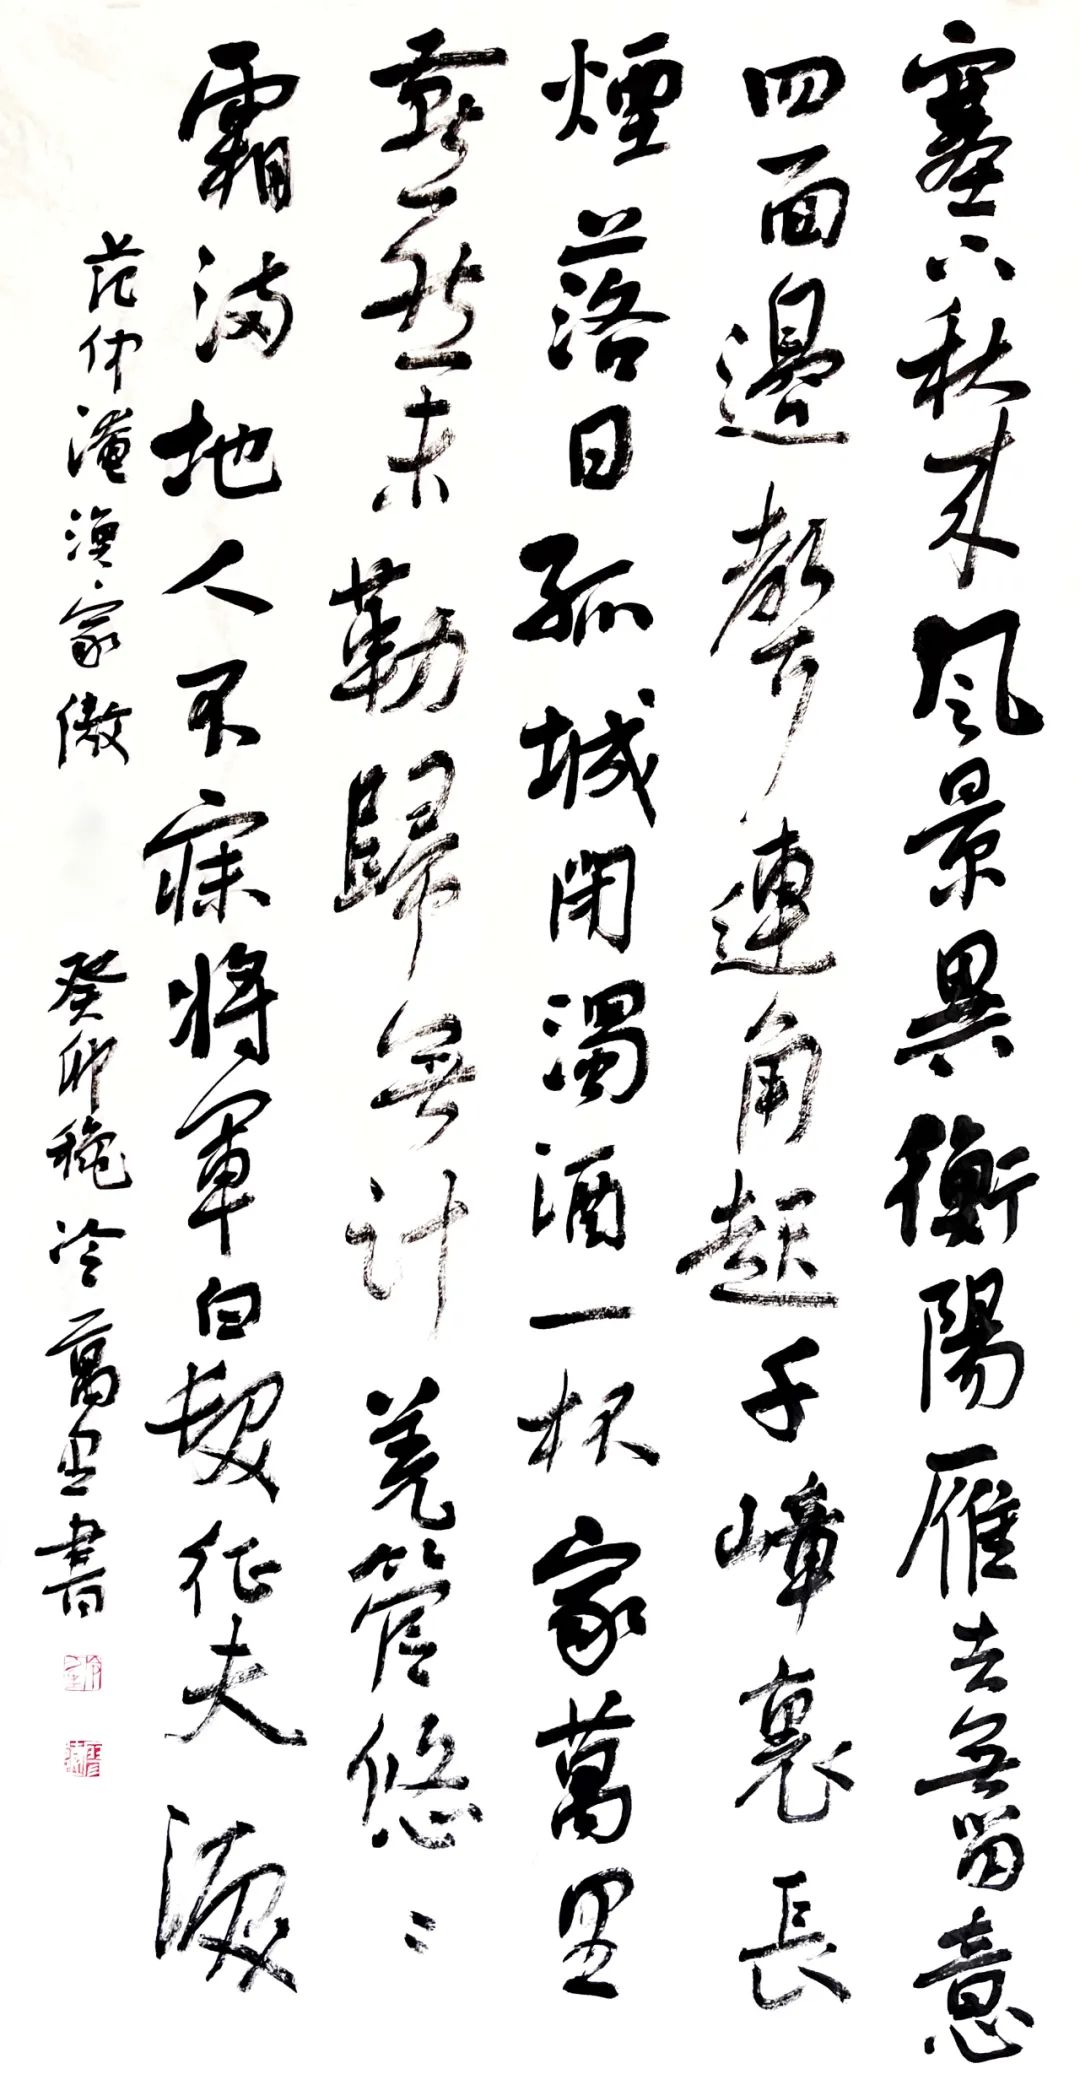 塞下秋来風景異衡陽雁去無留意
四面邊聲連角起千嶂裏長
煙落日孤城閉濁酒一杯家萬里
燕然未勒歸無計羌管悠〻
霜滿地人不寐將軍白髮征夫淚
范仲淹漁家傲 癸卯穐冷萬里書